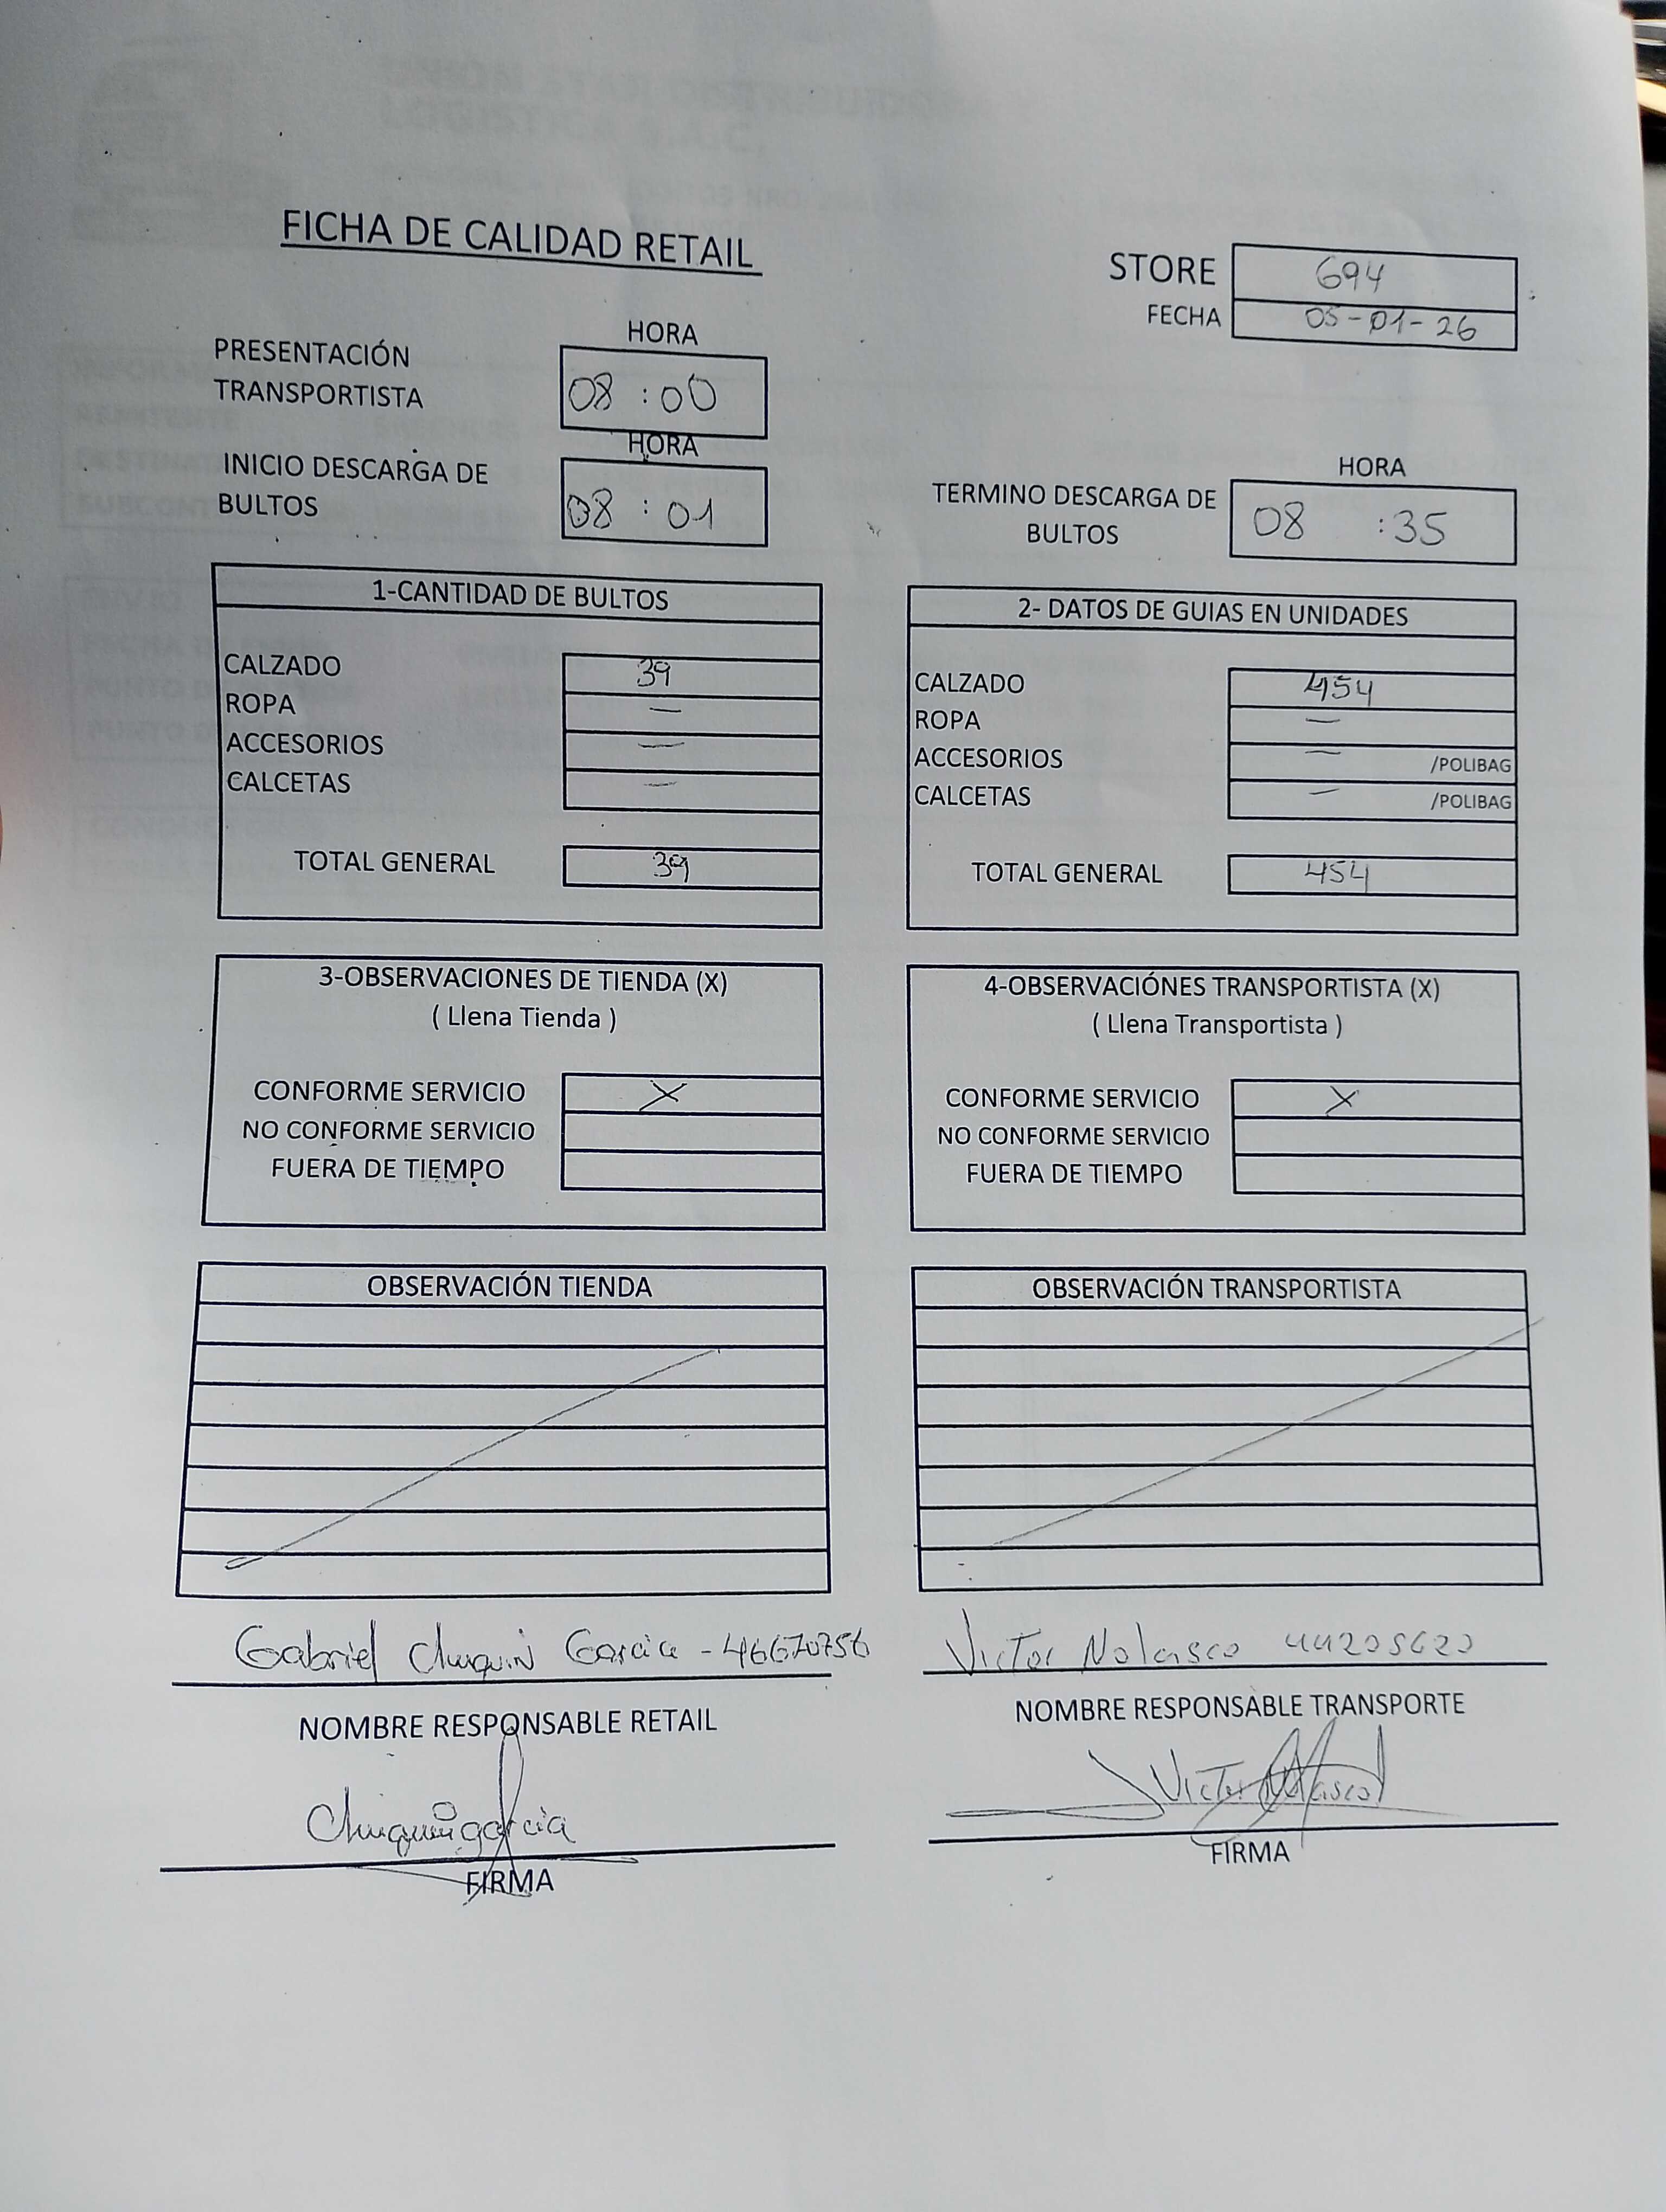 FICHA DE CALIDAD RETAIL
STORE 694
FECHA 05-01-26
HORA
PRESENTACIÓN
TRANSPORTISTA 08 : 00
HORA
INICIO DESCARGA DE
BULTOS 08 : 01
HORA
TERMINO DESCARGA DE
BULTOS 08 : 35
1-CANTIDAD DE BULTOS
CALZADO 39
ROPA —
ACCESORIOS —
CALCETAS —
TOTAL GENERAL 39
2- DATOS DE GUIAS EN UNIDADES
CALZADO 454
ROPA —
ACCESORIOS — /POLIBAG
CALCETAS — /POLIBAG
TOTAL GENERAL 454
3-OBSERVACIONES DE TIENDA (X)
( Llena Tienda )
CONFORME SERVICIO X
NO CONFORME SERVICIO
FUERA DE TIEMPO
4-OBSERVACIÓNES TRANSPORTISTA (X)
( Llena Transportista )
CONFORME SERVICIO X
NO CONFORME SERVICIO
FUERA DE TIEMPO
OBSERVACIÓN TIENDA
OBSERVACIÓN TRANSPORTISTA
Gabriel Chuquin Garcia - 46670756
NOMBRE RESPONSABLE RETAIL
Chuquin garcia
FIRMA
Victor Nolasco 44205620
NOMBRE RESPONSABLE TRANSPORTE
Victor Nolasco
FIRMA